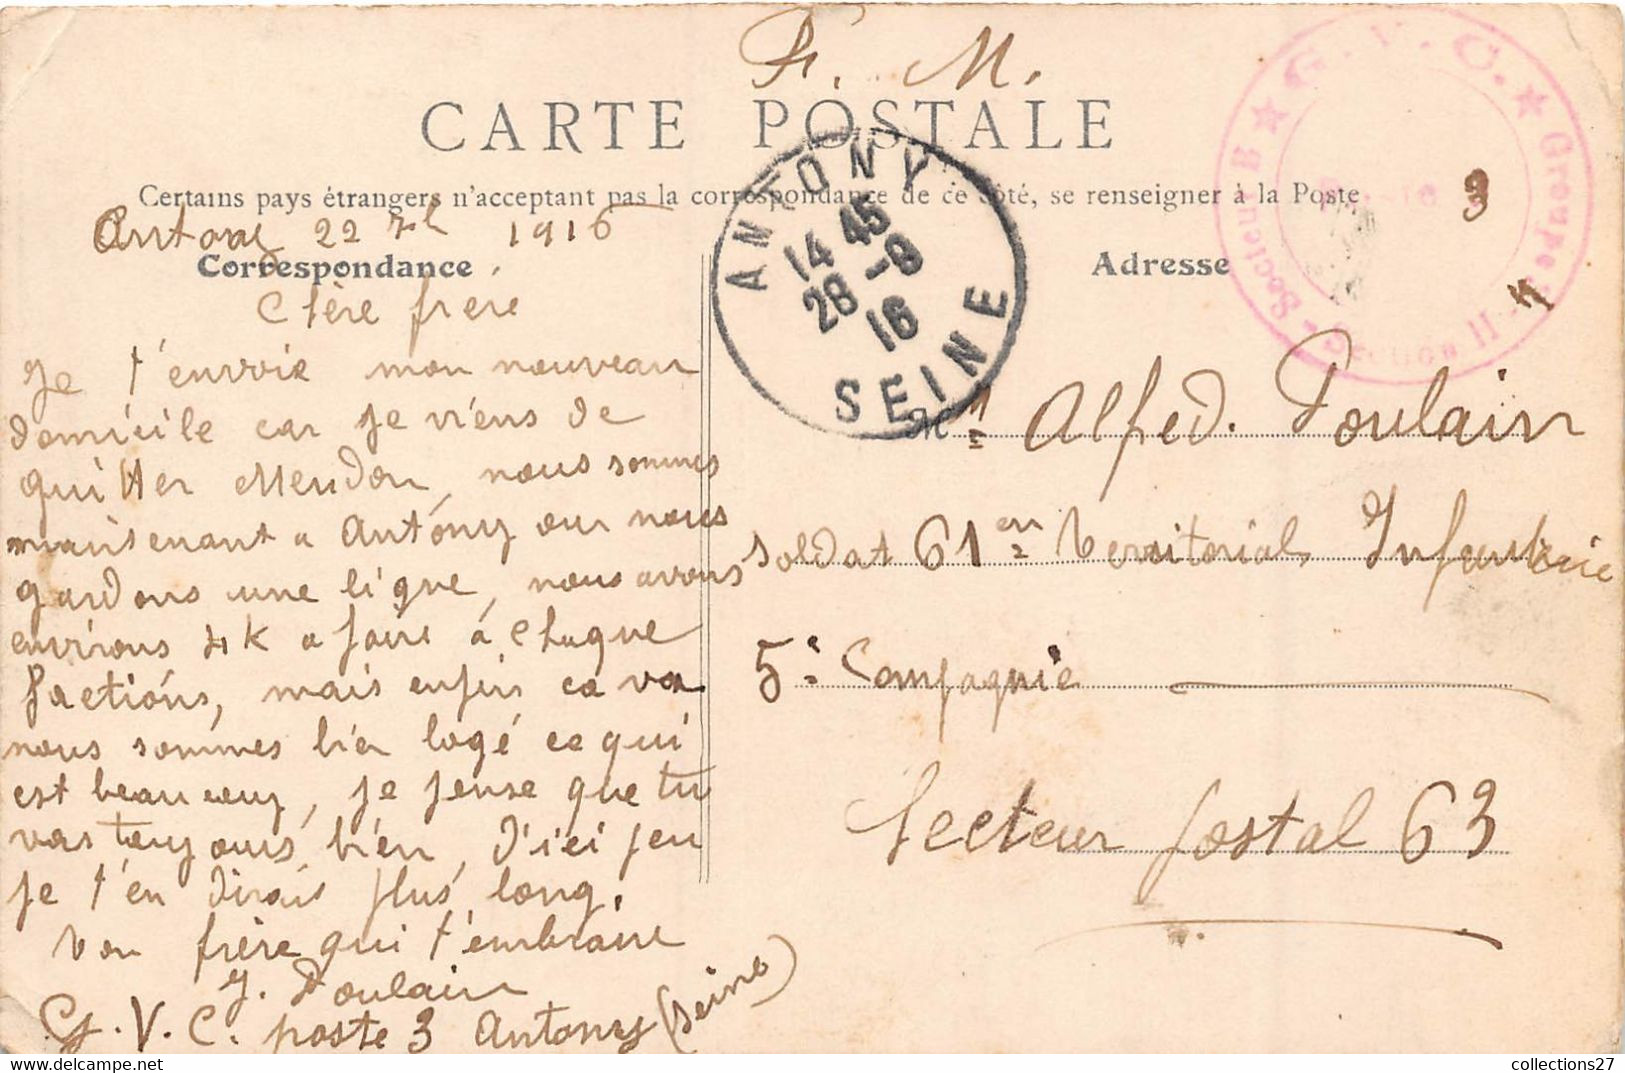 F. M.
CARTE POSTALE
Certains pays étrangers n'acceptant pas la correspondance de ce côté, se renseigner à la Poste
Antony 22 1916
Correspondance
Chère frère
Je t'envoie mon nouveau
domicile car je viens de
quitter Meudon, nous sommes
maintenant a Antony ou nous
gardons une ligne, nous avons
environs 4 K a faire à chaque
factions, mais enfin ca va
nous sommes bien logé ce qui
est beaucoup, je pense que tu
vas toujours bien, d'ici peu
je t'en dirais plus long.
Ton frère qui t'embrasse
J. Poulain
G. V. C. poste 3 Antony (Seine)
ANTONY
14 45
28 -8
16
SEINE
★ G. V. C. ★
Groupe
Section II
Secteur B
3
4
Adresse
M Alfred. Poulain
soldat 61 Territorial Infanterie
5e Compagnie
Secteur postal 63
collections27